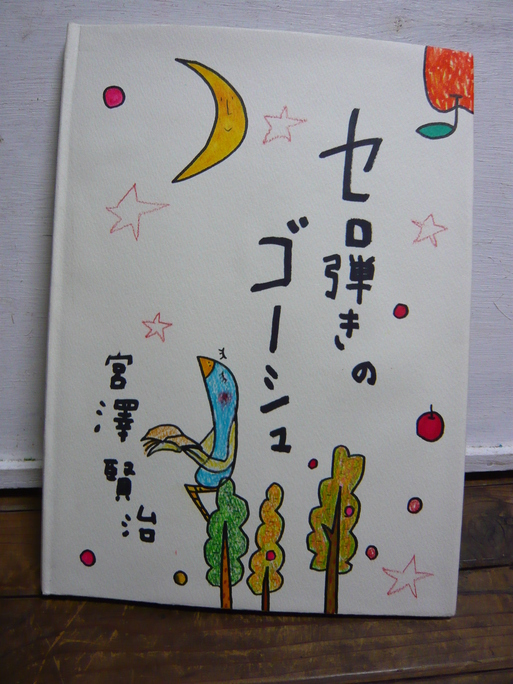 セロ弾きの
ゴーシュ
宮澤賢治